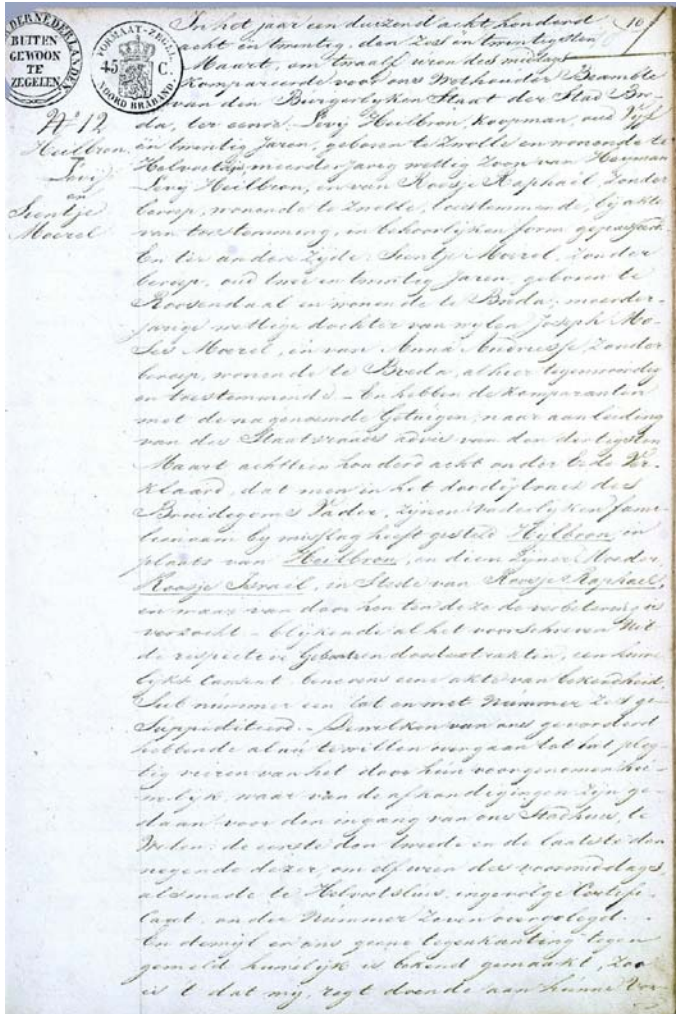 DER NEDERLANDEN
BUITEN
GEWOON
TE
ZEGELEN
FORMAAT-ZEGEL
45 C.
NOORD BRABAND
10
N.º 12
Heilbron,
Levij
en
Sientje
Moerel
In het jaar een duizend acht honderd
acht en twintig, den Zes en twintigsten
Maart, om twaalf uren des middags
kompareerde voor ons Wethouder Beambte
van den Burgerlyken Staat der Stad Bre-
da, ter eenre Levij Heilbron, koopman, oud Vyf
en twintig Jaren, geboren te Zwolle en wonende te
Helvoetsluis, meerderjarig wettig Zoon van Heyman
Levij Heilbron, en van Roosje Raphaël, Zonder
beroep, wonende te Zwolle, toestemmende, by akte
van toestemming, in behoorlyken form gepasseerd.
En ter andere Zyde, Sientje Moerel, Zonder
beroep, oud twee en twintig Jaren, geboren te
Roosendaal en wonende te Breda; meerder-
jarige wettige dochter van wylen Joseph Mo-
ses Moerel, en van Anna Andriesse, Zonder
beroep, wonende te Breda, alhier tegenwoordig
en toestemmende. – En hebben de komparanten
met de nagenoemde Getuigen, naar aanleiding
van des Staatsraads advis van den dertigsten
Maart achttien honderd acht onder Eede Ver-
klaard, dat men in het doodextract des
Bruidegoms Vader, zynen vaderlyken fami-
lienaam by misslag heeft gesteld Hylbron, in
plaats van Heilbron, en dien zyner Moeder
Roosje Israël, in Stede van Roosje Raphaël,
en waar van door hen ten deze de verbetering is
verzocht – blykende al het voorschreven Uit
de respective Geboorte en doodextrakten, een huwe-
lyks Consent, benevens eene akte van bekendheid,
Sub nummer een tot en met Nummer Zes ge-
Suppediteerd. – Dewelken van ons gevorderd
hebbende alsnu te willen overgaan tot het pleg-
tig vieren van het door hun voorgenomen hu-
welyk, waar van de afkondigingen Zyn ge-
daan voor den ingang van ons Stadhuis, te
Weten: de eerste den tweede en de laatste den
negende dezer, om elf uren des voormiddags,
alsmede te Helvoetsluis, ingevolge Certifi-
caat, onder Nummer Zeven overgelegd. –
En dewyl er ons geene tegenkanting tegen
gemeld huwelyk is bekend gemaakt, Zoo
is 't dat wy, regt doende aan hunne Vor-